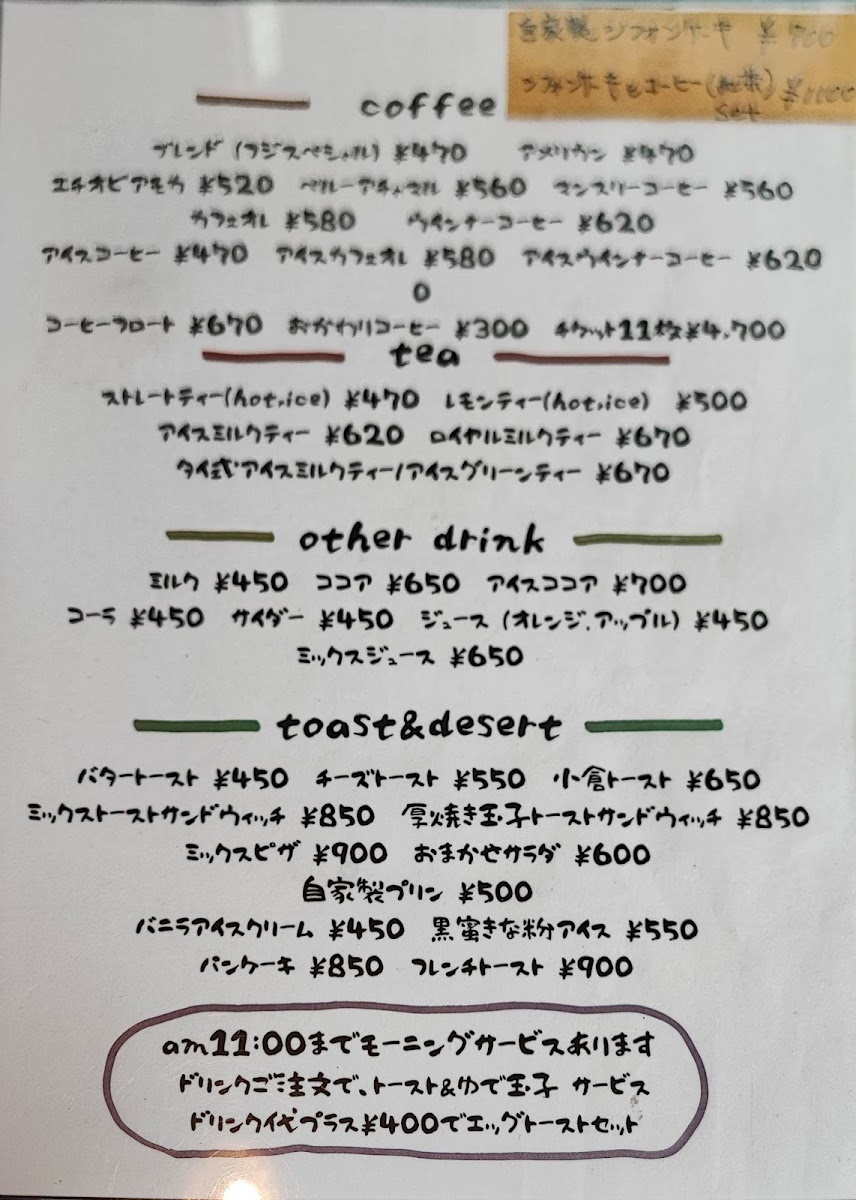 自家製シフォンケーキ ¥700
シフォンケーキ&コーヒー(紅茶) ¥1100
set
coffee
ブレンド (フジスペシャル) ¥470 アメリカン ¥470
エチオピアモカ ¥520 ペルーアチャマル ¥560 マンスリーコーヒー ¥560
カフェオレ ¥580 ウインナーコーヒー ¥620
アイスコーヒー ¥470 アイスカフェオレ ¥580 アイスウインナーコーヒー ¥620
0
コーヒーフロート ¥670 おかわりコーヒー ¥300 チケット11枚¥4,700
tea
ストレートティー(hot,ice) ¥470 レモンティー(hot,ice) ¥500
アイスミルクティー ¥620 ロイヤルミルクティー ¥670
タイ式アイスミルクティー/アイスグリーンティー ¥670
other drink
ミルク ¥450 ココア ¥650 アイスココア ¥700
コーラ ¥450 サイダー ¥450 ジュース (オレンジ,アップル) ¥450
ミックスジュース ¥650
toast&desert
バタートースト ¥450 チーズトースト ¥550 小倉トースト ¥650
ミックストーストサンドウィッチ ¥850 厚焼き玉子トーストサンドウィッチ ¥850
ミックスピザ ¥900 おまかせサラダ ¥600
自家製プリン ¥500
バニラアイスクリーム ¥450 黒蜜きな粉アイス ¥550
パンケーキ ¥850 フレンチトースト ¥900
am11:00までモーニングサービスあります
ドリンクご注文で、トースト&ゆで玉子 サービス
ドリンク代プラス¥400でエッグトーストセット